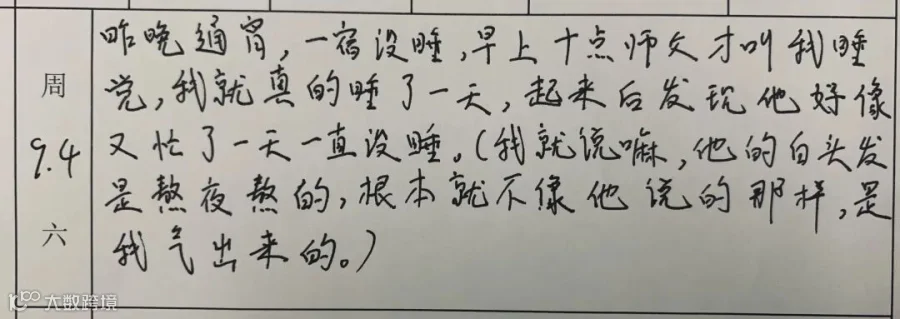 周
9.4
六
昨晚通宵，一宿没睡，早上十点师父才叫我睡
觉，我就真的睡了一天，起来后发现他好像
又忙了一天一直没睡。（我就说嘛，他的白头发
是熬夜熬的，根本就不像他说的那样，是
我气出来的。）
大数跨境